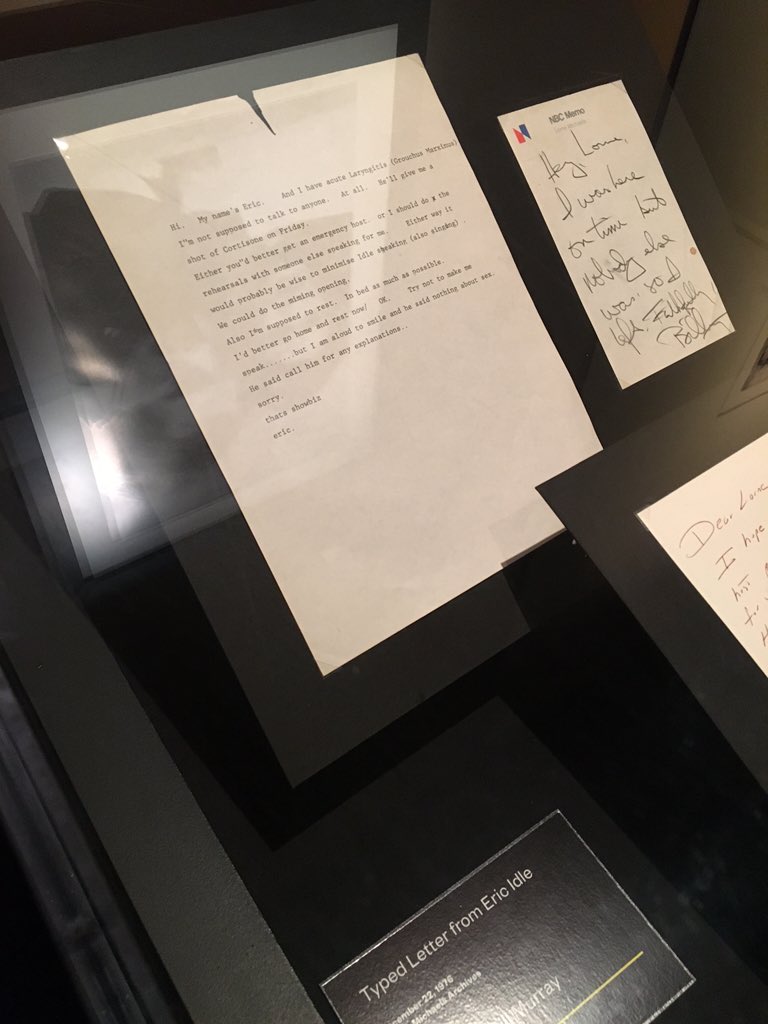 Hi.   My name's Eric.   And I have acute Laryngitis (Grouchus Marxinus)
I"m not supposed to talk to anyone.   At all.   He'll give me a
shot of Cortisone on Friday.
Either you"d better get an emergency host.  or I should do x the
rehearsals with someone else speaking for me.    Either way it
would probably be wise to minimise Idle sheaking (also singing) .
We could do the miming opening.
Also I"m supposed to rest.  In bed as much as possible.
I'd better go home and rest now/   OK.   Try not to make me
speak.......but I am aloud to smile and he said nothing about sex.
He said call him for any explanations..
sorry.
thats showbiz
eric.
NBC Memo
Lorne Michaels
Hey Lorne,
I was here
on time but
nobody else
was. so I
left. Faithfully
Bill
Dear Lorne
I hope
host
for
Typed Letter from Eric Idle
cember 22, 1976
Michaels Archives
Murray